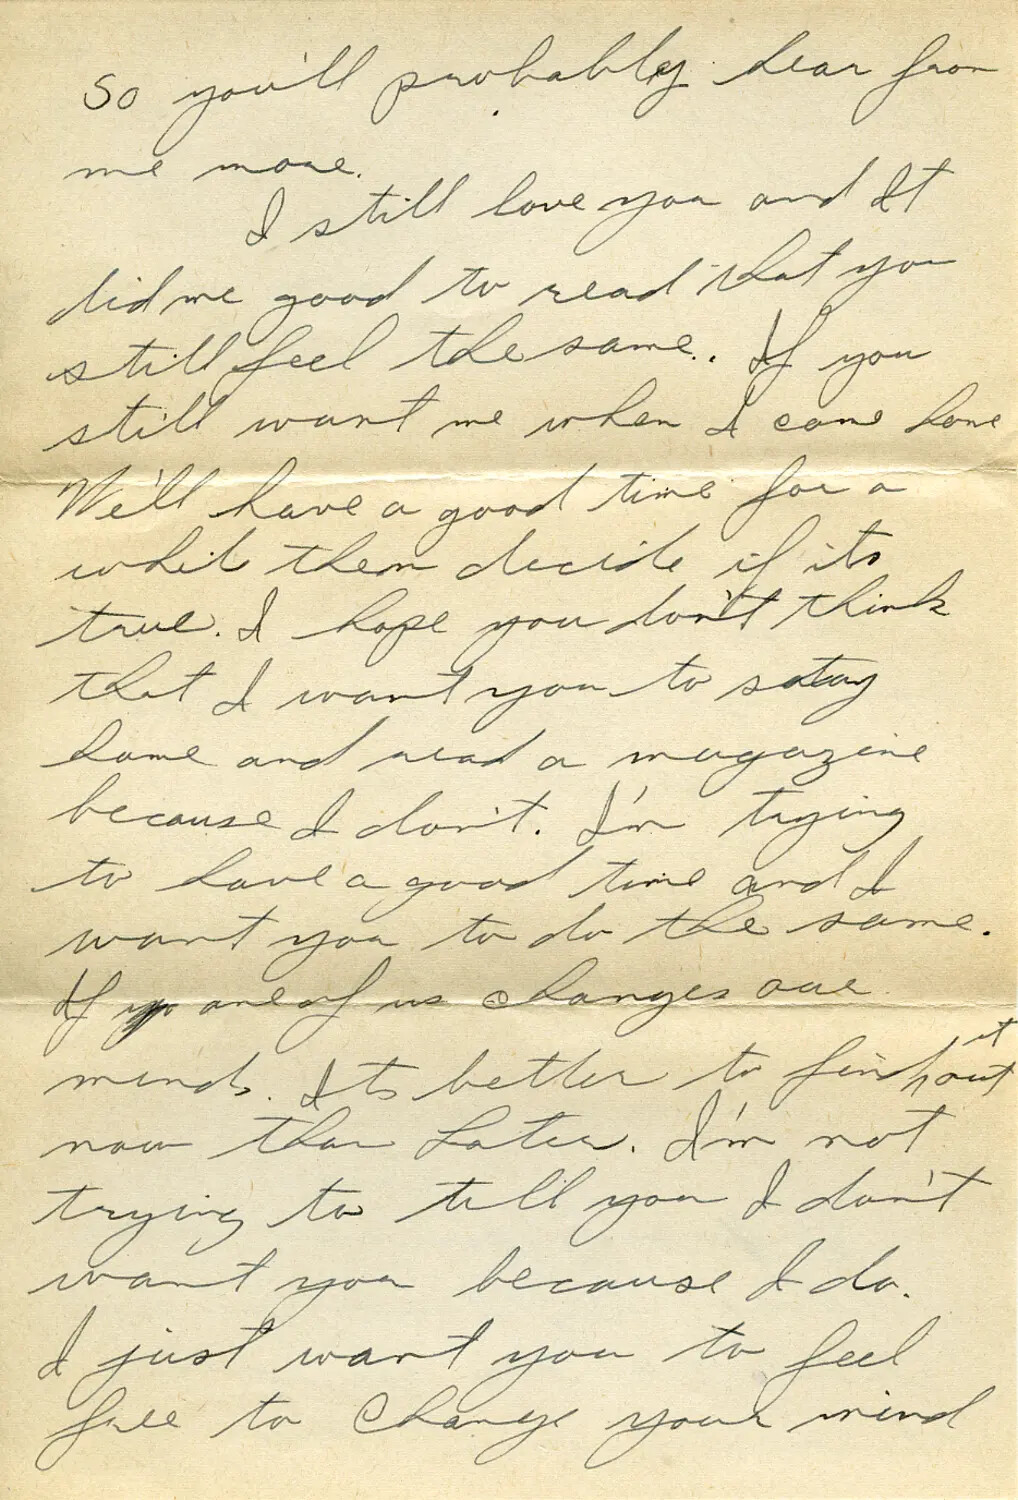 So you'll probably hear from
me more.
I still love you and It
did me good to read that you
still feel the same. If you
still want me when I come home
We'll have a good time for a
while then decide if its
true. I hope you don't think
that I want you to stay
home and read a magazine
because I don't. I'm trying
to have a good time and I
want you to do the same.
If one of us changes our
minds. Its better to find it out
now than later. I'm not
trying to tell you I don't
want you because I do.
I just want you to feel
free to change your mind